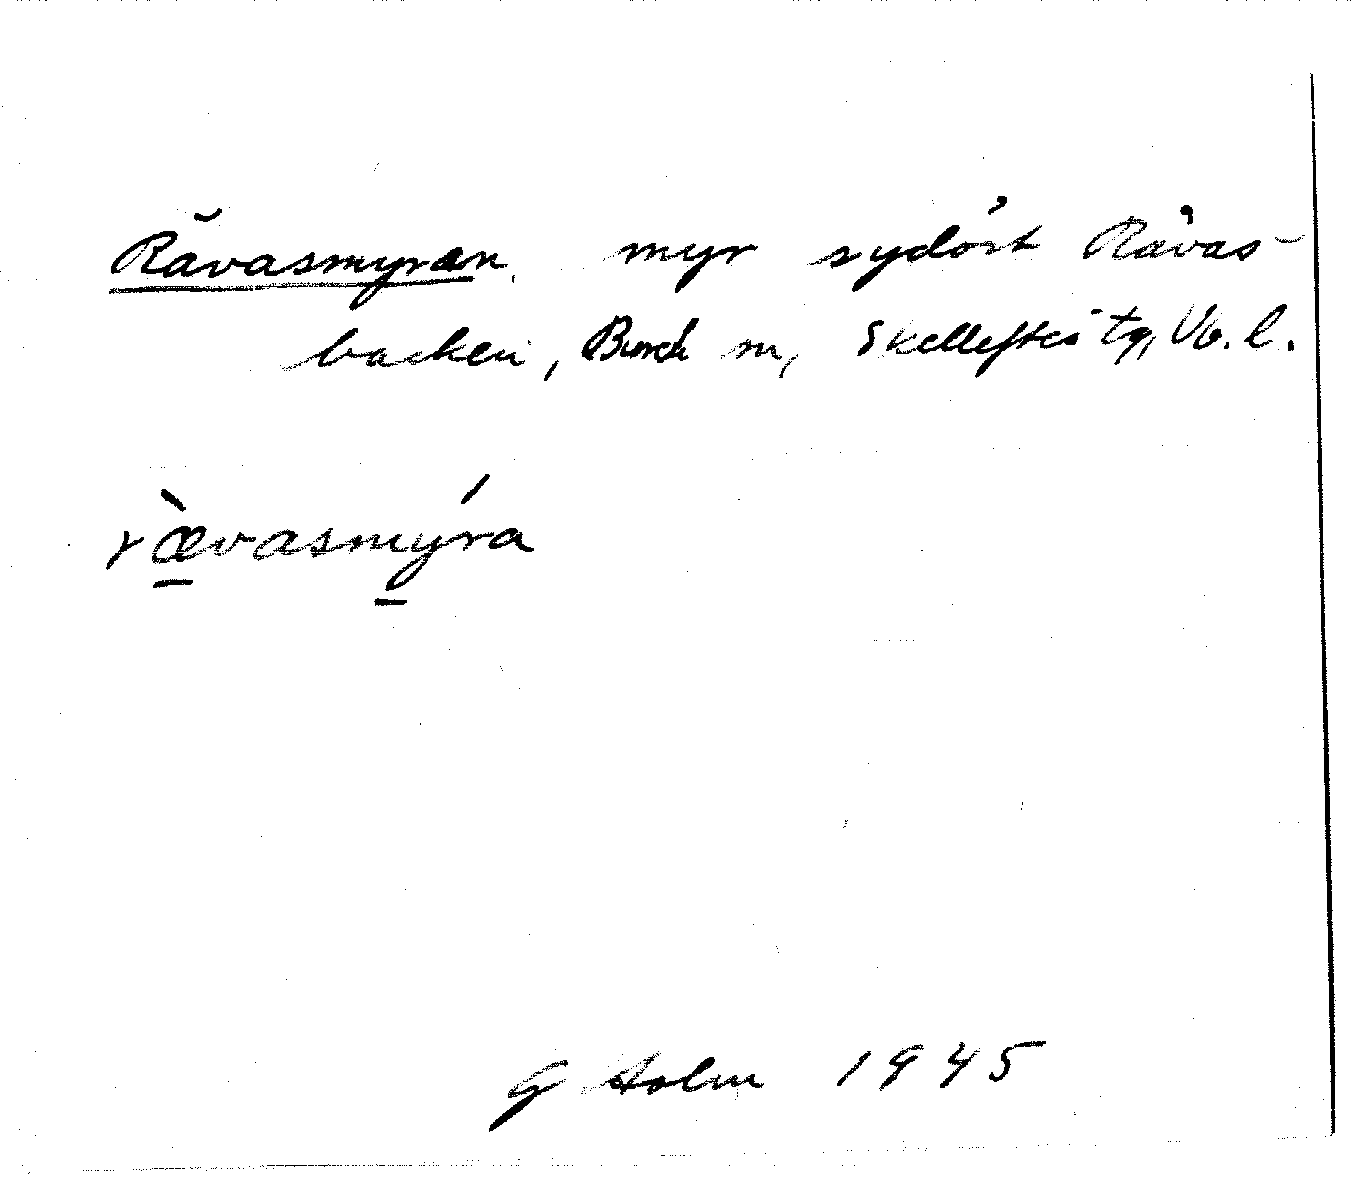 Rävasmyran, myr sydöst Rävas-
backen, Bureå sn, Skellefteå tg, Vb. l.
rævasmyra
G Holm 1945